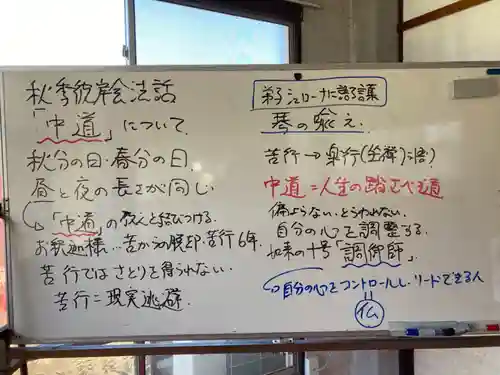 秋季彼岸会法話
「中道」について.
秋分の日・春分の日.
昼と夜の長さが同じ.
「中道」の教えと結びつける.
お釈迦様…苦からの脱却・苦行6年.
苦行ではさとりを得られない.
苦行=現実逃避.
弟子シュローナに語る言葉
琴の喩え.
苦行→楽行(坐禅):悟)
中道=人生の踏むべき道
偏よらない、とらわれない.
自分の心を調整する.
如来の十号「調御師」
自分の心をコントロールし、リードできる人
=
仏